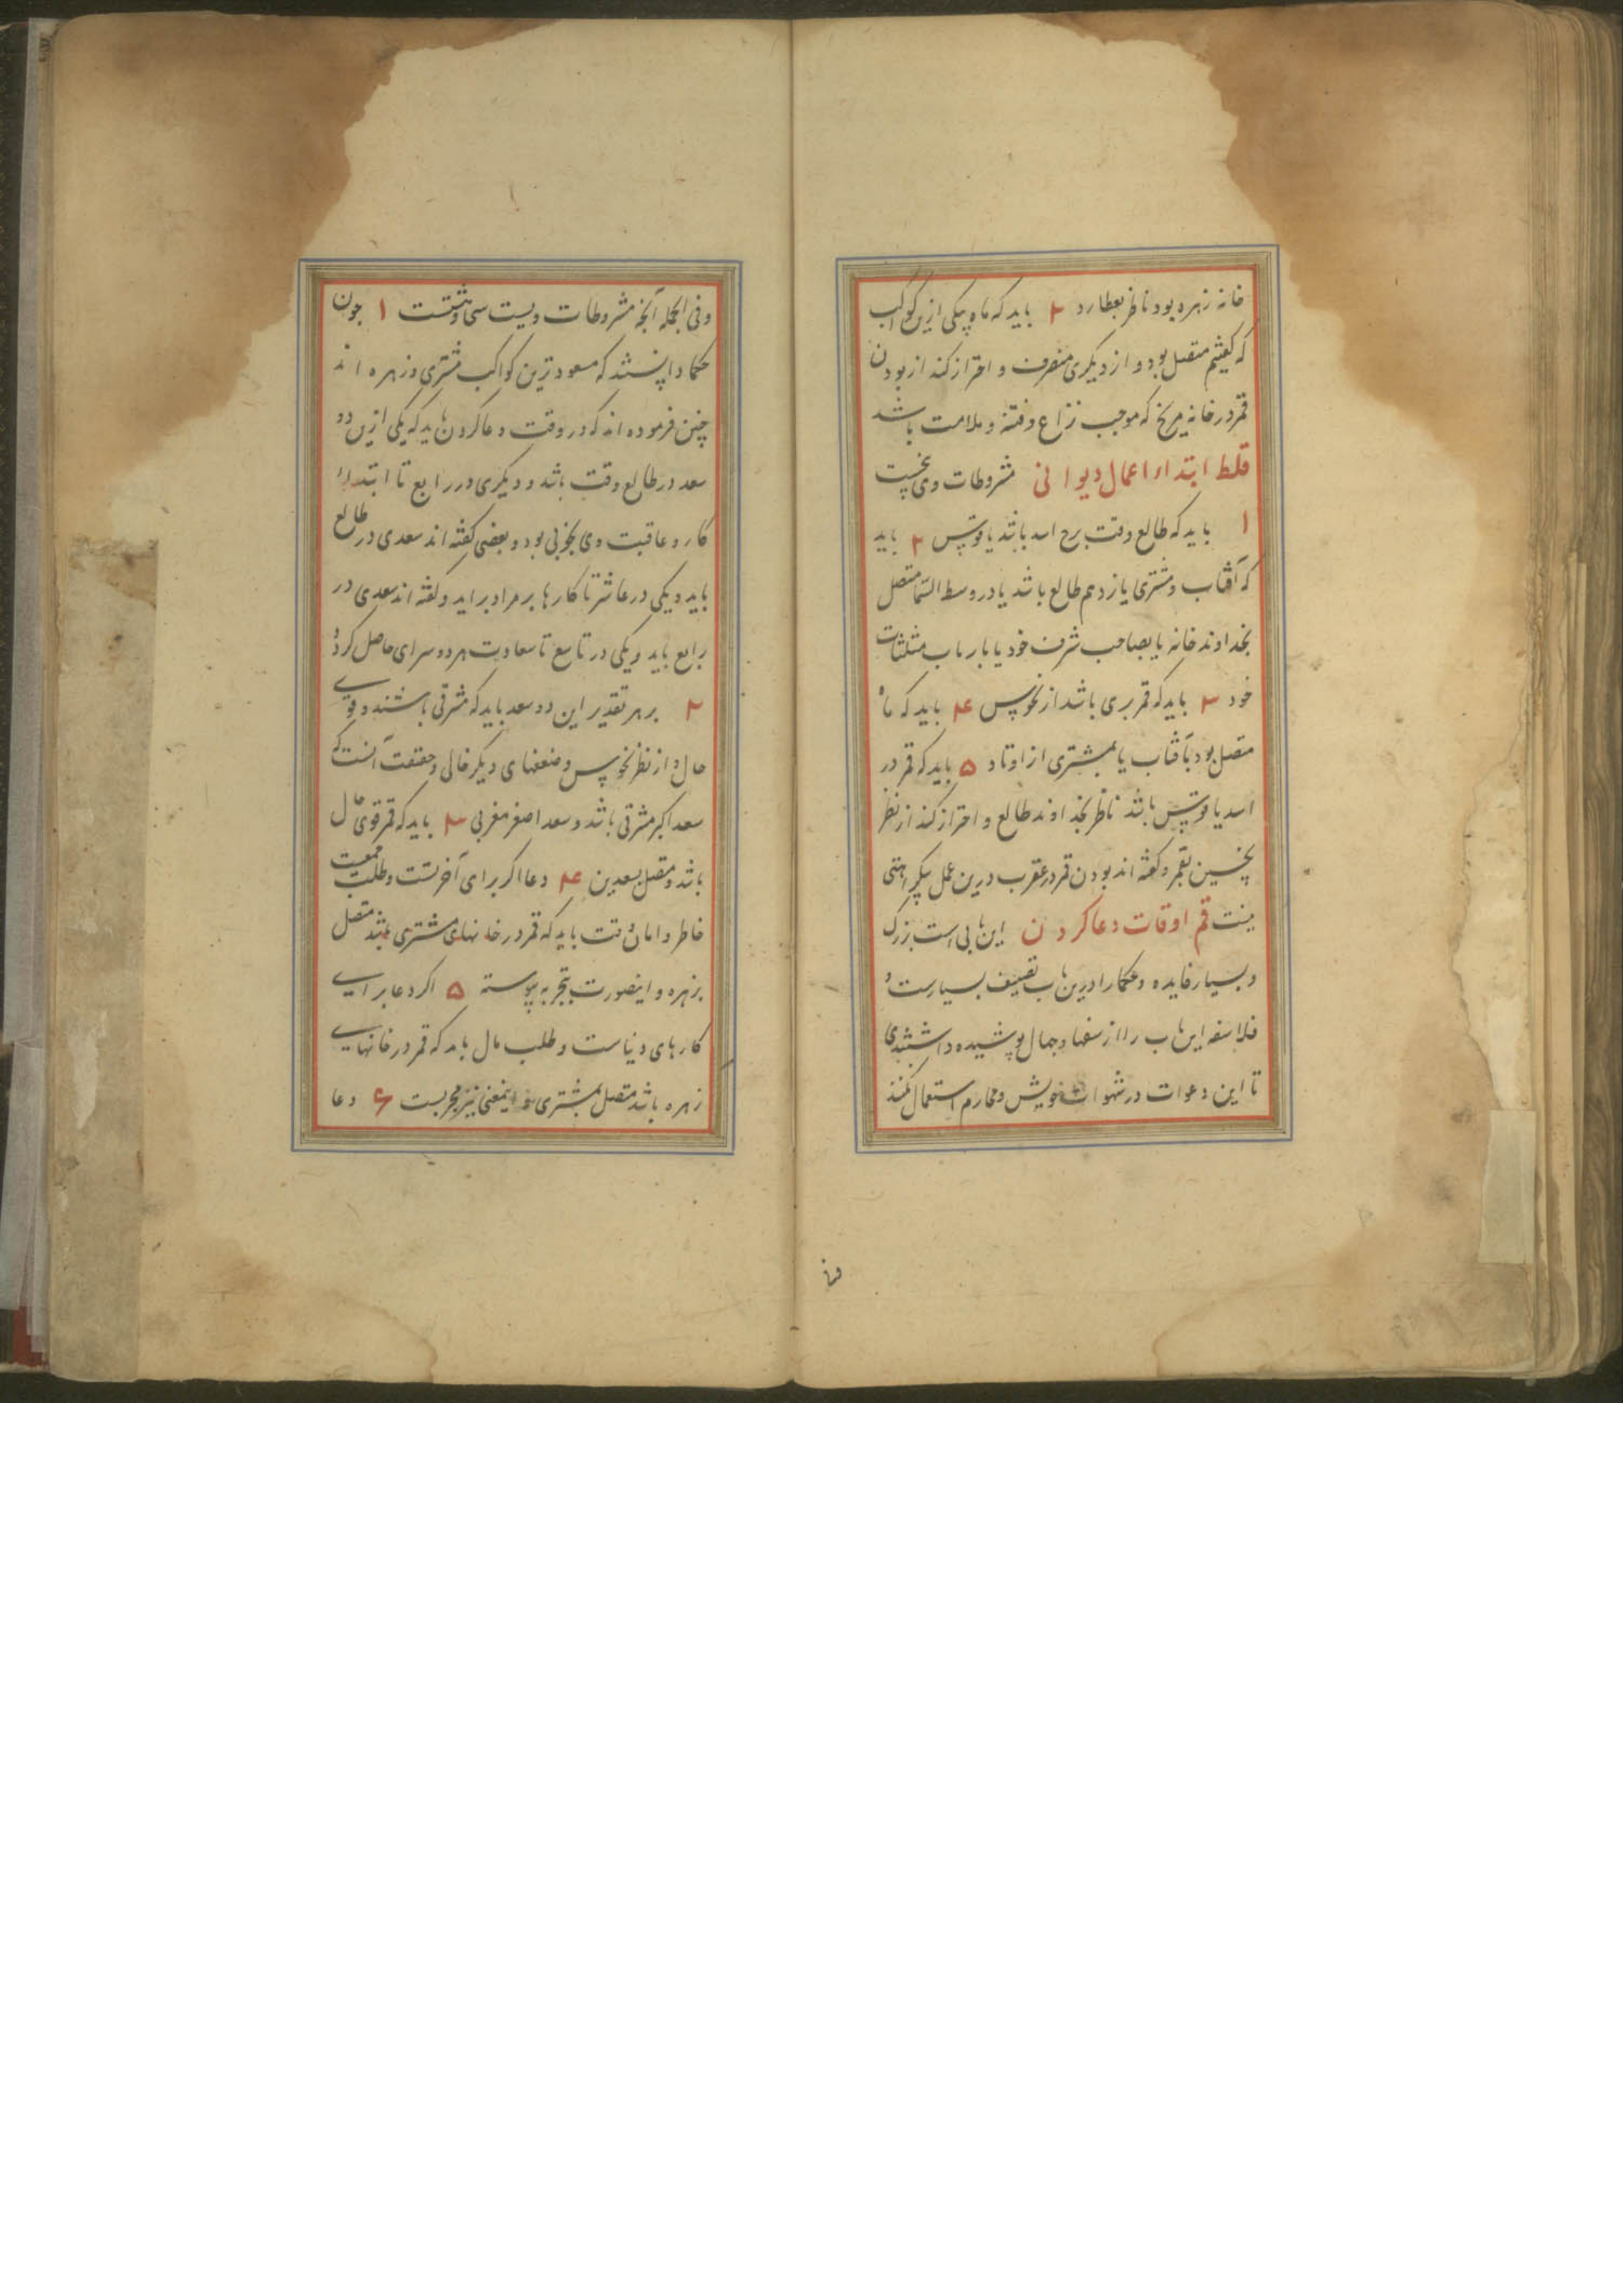 خانه زهره بود ناظر بعطارد ۴ باید که ماه بیکی ازین کواکب
که گفتیم متصل بود و از دیگری منصرف و احتراز کند از بودن
قمر در خانه مریخ که موجب نزاع و فتنه و ملامت باشد
قلط ابتداء اعمال دیوانی مشروطات وی پنجست
۱ باید که طالع وقت برج اسد باشد یا قوس ۲ باید
که آفتاب و مشتری یازدهم طالع باشد یا در وسط السما متصل
بخداوند خانه یا بصاحب شرف خود یا بارباب مثلثات
خود ۳ باید که قمر بری باشد از نحوس ۴ باید که ماه
متصل بود بآفتاب یا بمشتری از اوتاد ۵ باید که قمر در
اسد یا قوس باشد ناظر بخداوند طالع و احتراز کند از نظر
نحسین بقمر و گفته اند بودن قمر در عقرب درین عمل بیکراهتی
نیست قم اوقات دعا کردن این بابی است بزرگ
و بسیار فایده و حکما را درین باب تصنیف بسیارست و
فلاسفه این باب را از سفها و جهال پوشیده داشتندی
تا این دعوات در شهوات خویش و محارم استعمال نکنند
وفی الجمله آنچه مشروطات ویست سی و هشتست ۱ چون
حکما دانستند که مسعودترین کواکب مشتری و زهره اند
چنین فرموده اند که در وقت دعا کردن باید که یکی ازین دو
سعد در طالع وقت باشد و دیگری در رابع تا ابتداء
کار و عاقبت وی بخوبی بود و بعضی گفته اند سعدی در طالع
باید و یکی در عاشر تا کارها بر مراد براید و گفته اند سعدی در
رابع باید و یکی در تاسع تا سعادت هر دو سرای حاصل کرده
۲ بر هر تقدیر این دو سعد باید که مشرقی باشند و قوی
حال و از نظر نحوس و ضعفهای دیگر خالی و حقیقت آنست که
سعد اکبر مشرقی باشد و سعد اصغر مغربی ۳ باید که قمر قوی حال
باشد و متصل بسعدین ۴ دعا اگر برای آخرتست و طلب جمعیت
خاطر و امان وقت باید که قمر در خانهای مشتری باشد متصل
بزهره و اینصورت بتجربه پیوسته ۵ اگر دعا برای
کارهای دنیاست و طلب مال باید که قمر در خانهای
زهره باشد متصل بمشتری و اینمعنی نیز مجربست ۶ دعا